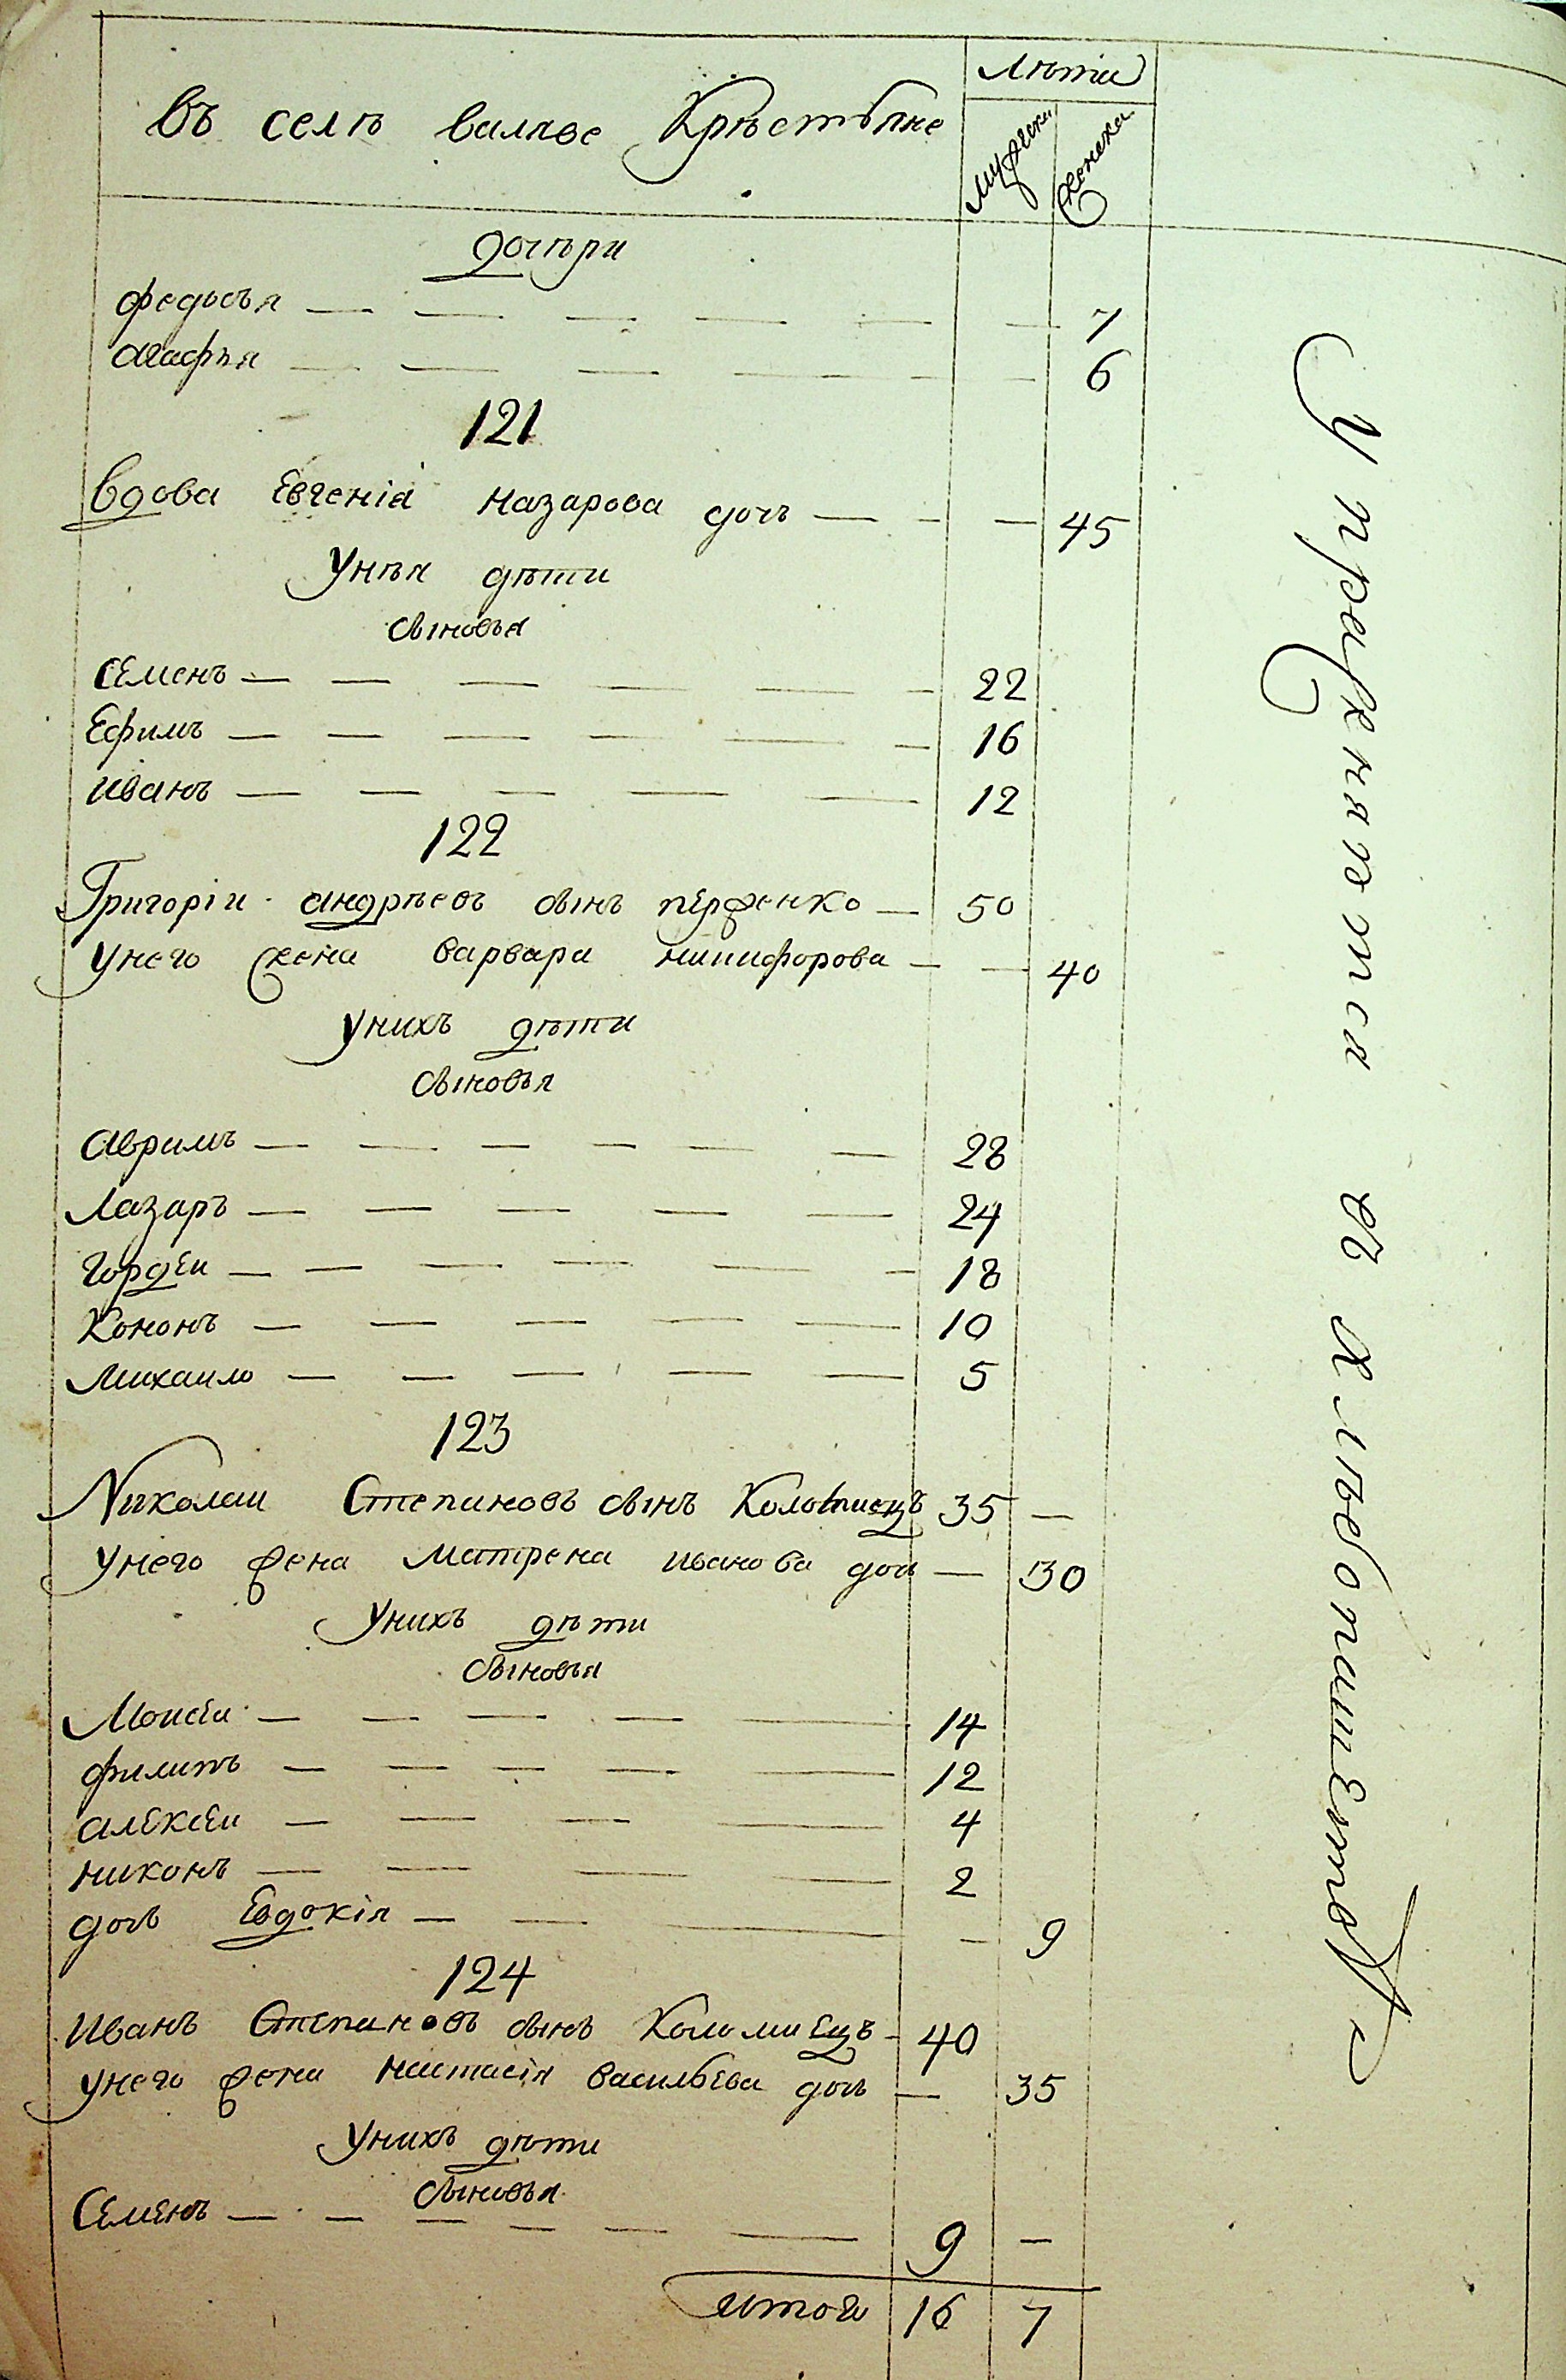 Въ селѣ валаве Крѣстьяне
Лѣта
мужска
женска
дочѣри
федосья — — — — — — 7
агафья — — — — — — 6
121
Вдова Евгенія назарова дочь — — — 45
Унѣя дѣти
сыновья
Семенъ — — — — — — 22
Ефимъ — — — — — — 16
иванъ — — — — — 12
122
Григорій андрѣевъ сынъ — 50
Унего жена варвара никифорова — — 40
Унихъ дѣти
сыновья
аврамъ — — — — — — 28
Лазаръ — — — — — 24
гордеи — — — — — — 18
Кононъ — — — — — 10
михаило — — — — — 5
123
Николаи Степановъ сынъ 35 —
Унего жена Матрена иванова дочь — 30
Унихъ дѣти
сыновья
Моисеи — — — — — 14
филипъ — — — — — 12
алексеи — — — — 4
никонъ — — — — 2
дочь Евдокія — — — — 9
124
иванъ Степановъ сынъ Коломиецъ — 40
унего жена настасія васильева дочь — 35
Унихъ дѣти
сыновья
Семенъ — — — — — — 9 —
итого 16 7
Упражняется въ хлѣбопашествѣ